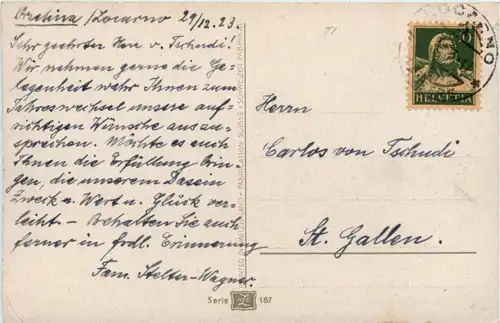 Orselina / Locarno 29/12.23.
Sehr geehrter Herr v. Tschudi!
Wir nehmen gerne die Ge-
legenheit wahr Ihnen zum
Jahreswechsel unsere auf-
richtigen Wünsche auszu-
sprechen. Möchte es auch
Ihnen die Erfüllung brin-
gen, die unserem Dasein
Zweck u. Wert u. Glück ver-
leiht – Behalten Sie auch
ferner in frdl. Erinnerung
Fam. Stelter-Wagner.
FABRICATION SUISSE • SCHWEIZER FABRIKAT
HELVETIA
Herrn
Carlos von Tschudi
St. Gallen.
Serie 167